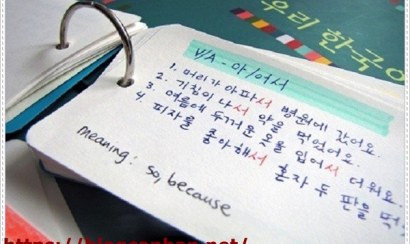 우리 한국어
V/A - 아/어서
1. 머리가 아파서 병원에 갔어요.
2. 기침이 나서 약을 먹었어요.
3. 여름에 두꺼운 옷을 입어서 더워요.
4. 피자를 좋아해서 혼자 두 판을 먹
meaning: so, because